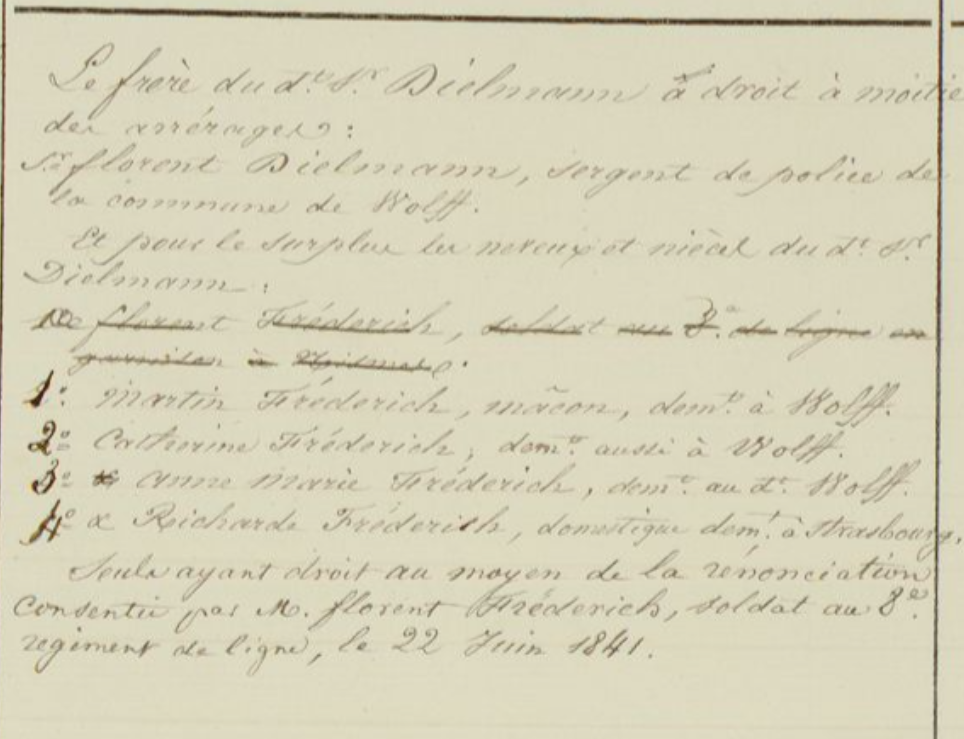 Le frère du dt. Sr. Dielmann a droit à moitié
des arrérages :
Sr. florent Dielmann, sergent de police de
la commune de Wolff.
Et pour le surplus les neveux et nièces du dt. Sr.
Dielmann :
florent Fréderich, soldat au 8e. de ligne en
garnison à
1º. Martin Fréderich, mâcon, demt. à Wolff.
2º Catherine Fréderich, demt. aussi à Wolff.
3º Anne Marie Fréderich, demt. au dt. Wolff.
4º & Reicharde Fréderich, domestique demt. à Strasbourg,
Seuls ayant droit au moyen de la rénonciation
Consentie par M. florent Fréderich, soldat au 8e.
regiment de ligne, le 22 Juin 1841.